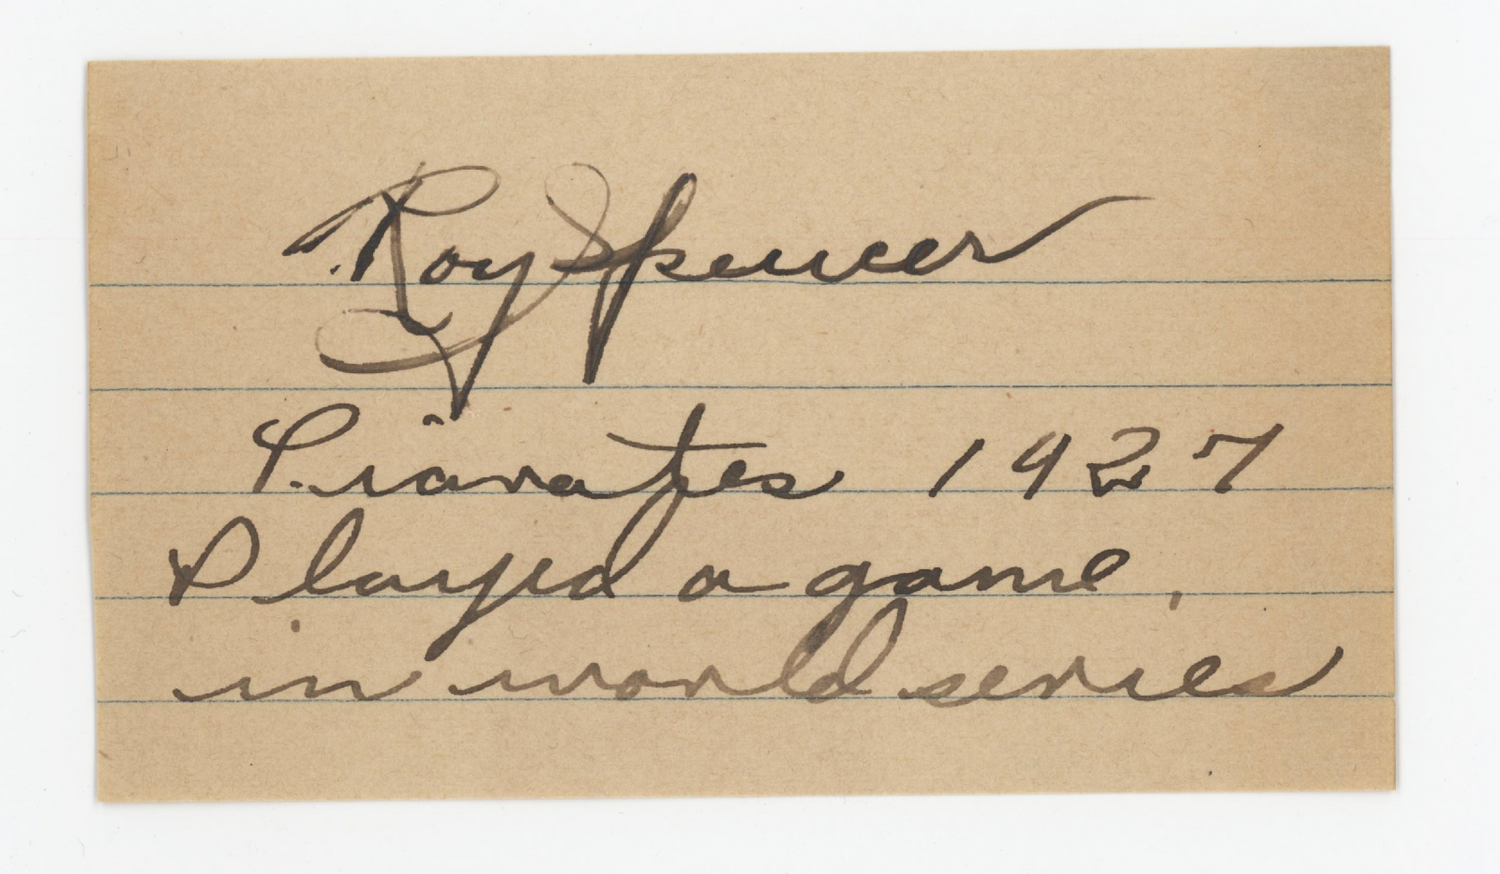 Roy Spencer
Piarates 1927
Played a game,
in world series